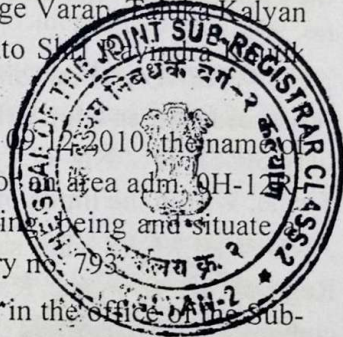 ge Varap, Taluka Kalyan
to Shri Ravindra
09.12.2010, the name of
an area adm. 0H-12R-
being and situate
ry no. 793
in the office of the Sub-
THE SEAL OF THE JOINT SUB-REGISTRAR CLASS-2 ★
दुय्यम निबंधक वर्ग-२ कल्याण
क्र. २